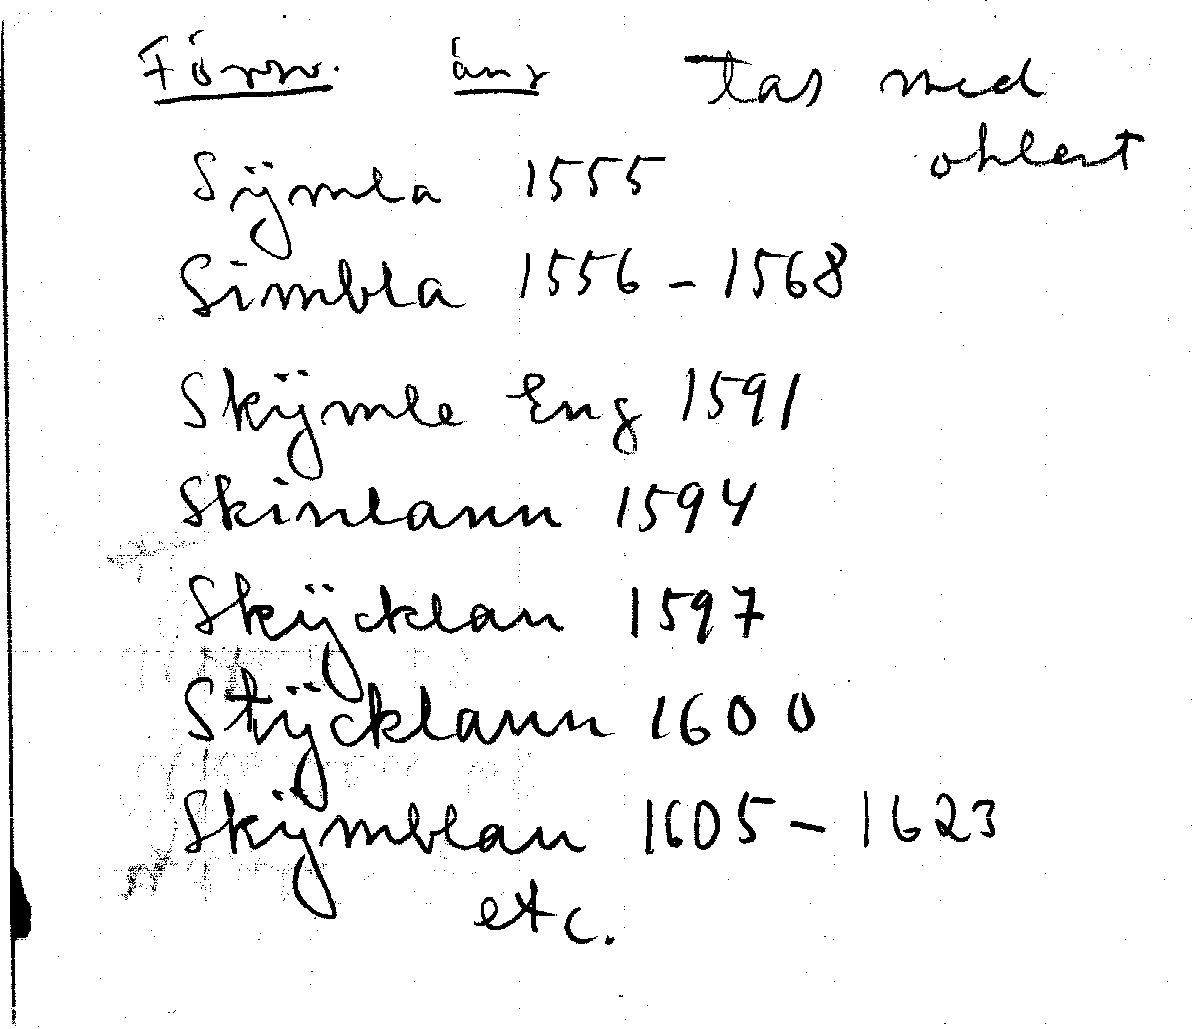 tas med
ohlert
Sÿmla 1555
Simbla 1556 - 1568
Skÿmle Eng 1591
Skinlann 1594
Skÿcklan 1597
Stÿcklann 1600
Skÿmblan 1605 - 1623
etc.